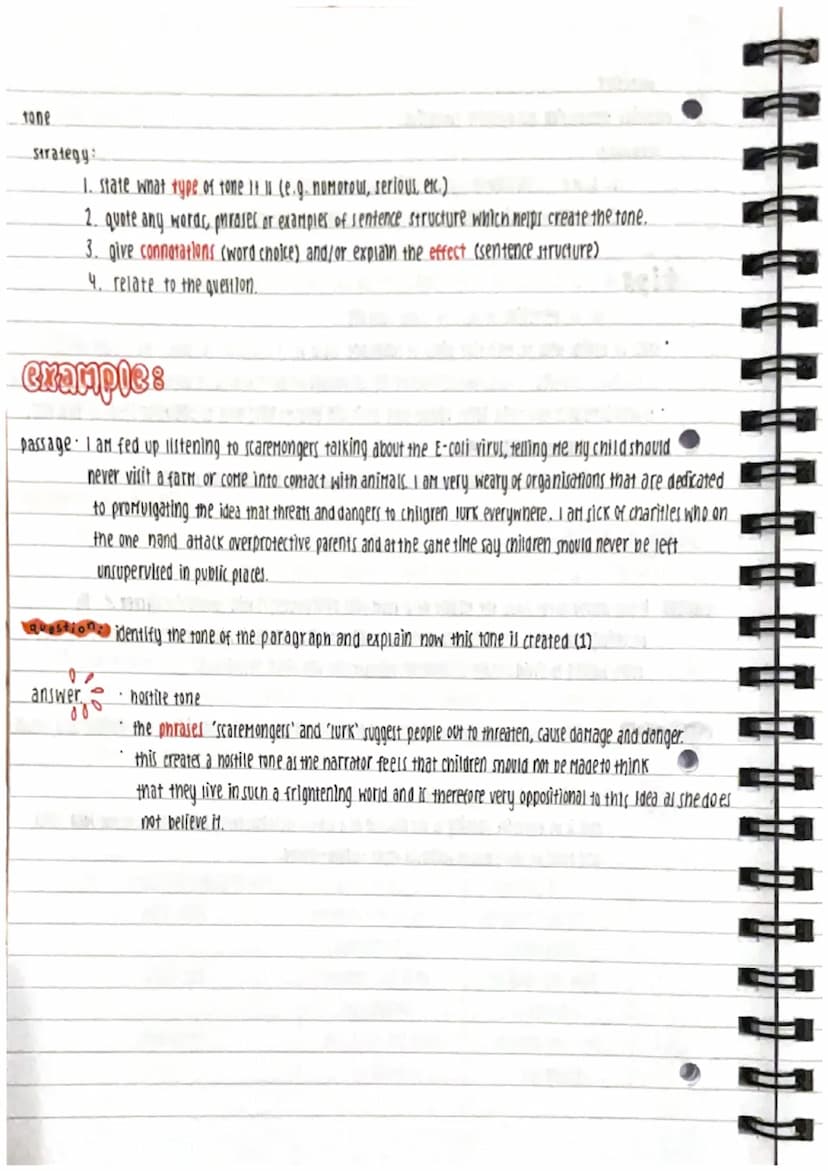 tone
strategy:
1. state what type of tone it is (e.g. humorous, serious, etc.)
2. quote any words, phrases or examples of sentence structure which helps create the tone.
3. give connotations (word choice) and/or explain the effect (sentence structure)
4. relate to the question.
example:
passage · I am fed up listening to scaremongers talking about the E-coli virus, telling me my child should
never visit a farm or come into contact with animals. I am very weary of organisations that are dedicated
to promulgating the idea that threats and dangers to children lurk everywhere. I am sick of charities who on
the one hand attack overprotective parents and at the same time say children should never be left
unsupervised in public places.
question: identify the tone of the paragraph and explain how this tone is created (2)
answer · hostile tone
· the phrases 'scaremongers' and 'lurk' suggest people out to threaten, cause damage and danger.
· this creates a hostile tone as the narrator feels that children should not be made to think
that they live in such a frightening world and is therefore very oppositional to this idea as she does
not believe it.